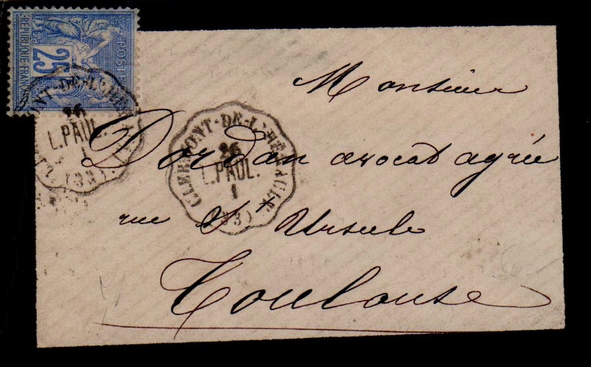 POSTES
25
RÉPUBLIQUE FRANÇAISE
26
L.PAUL.
CLERMONT-DE-L'HÉRAULT
26
L.PAUL.
1
(33)
Monsieur
Dordan avocat agréé
rue Ste Ursule
Toulouse